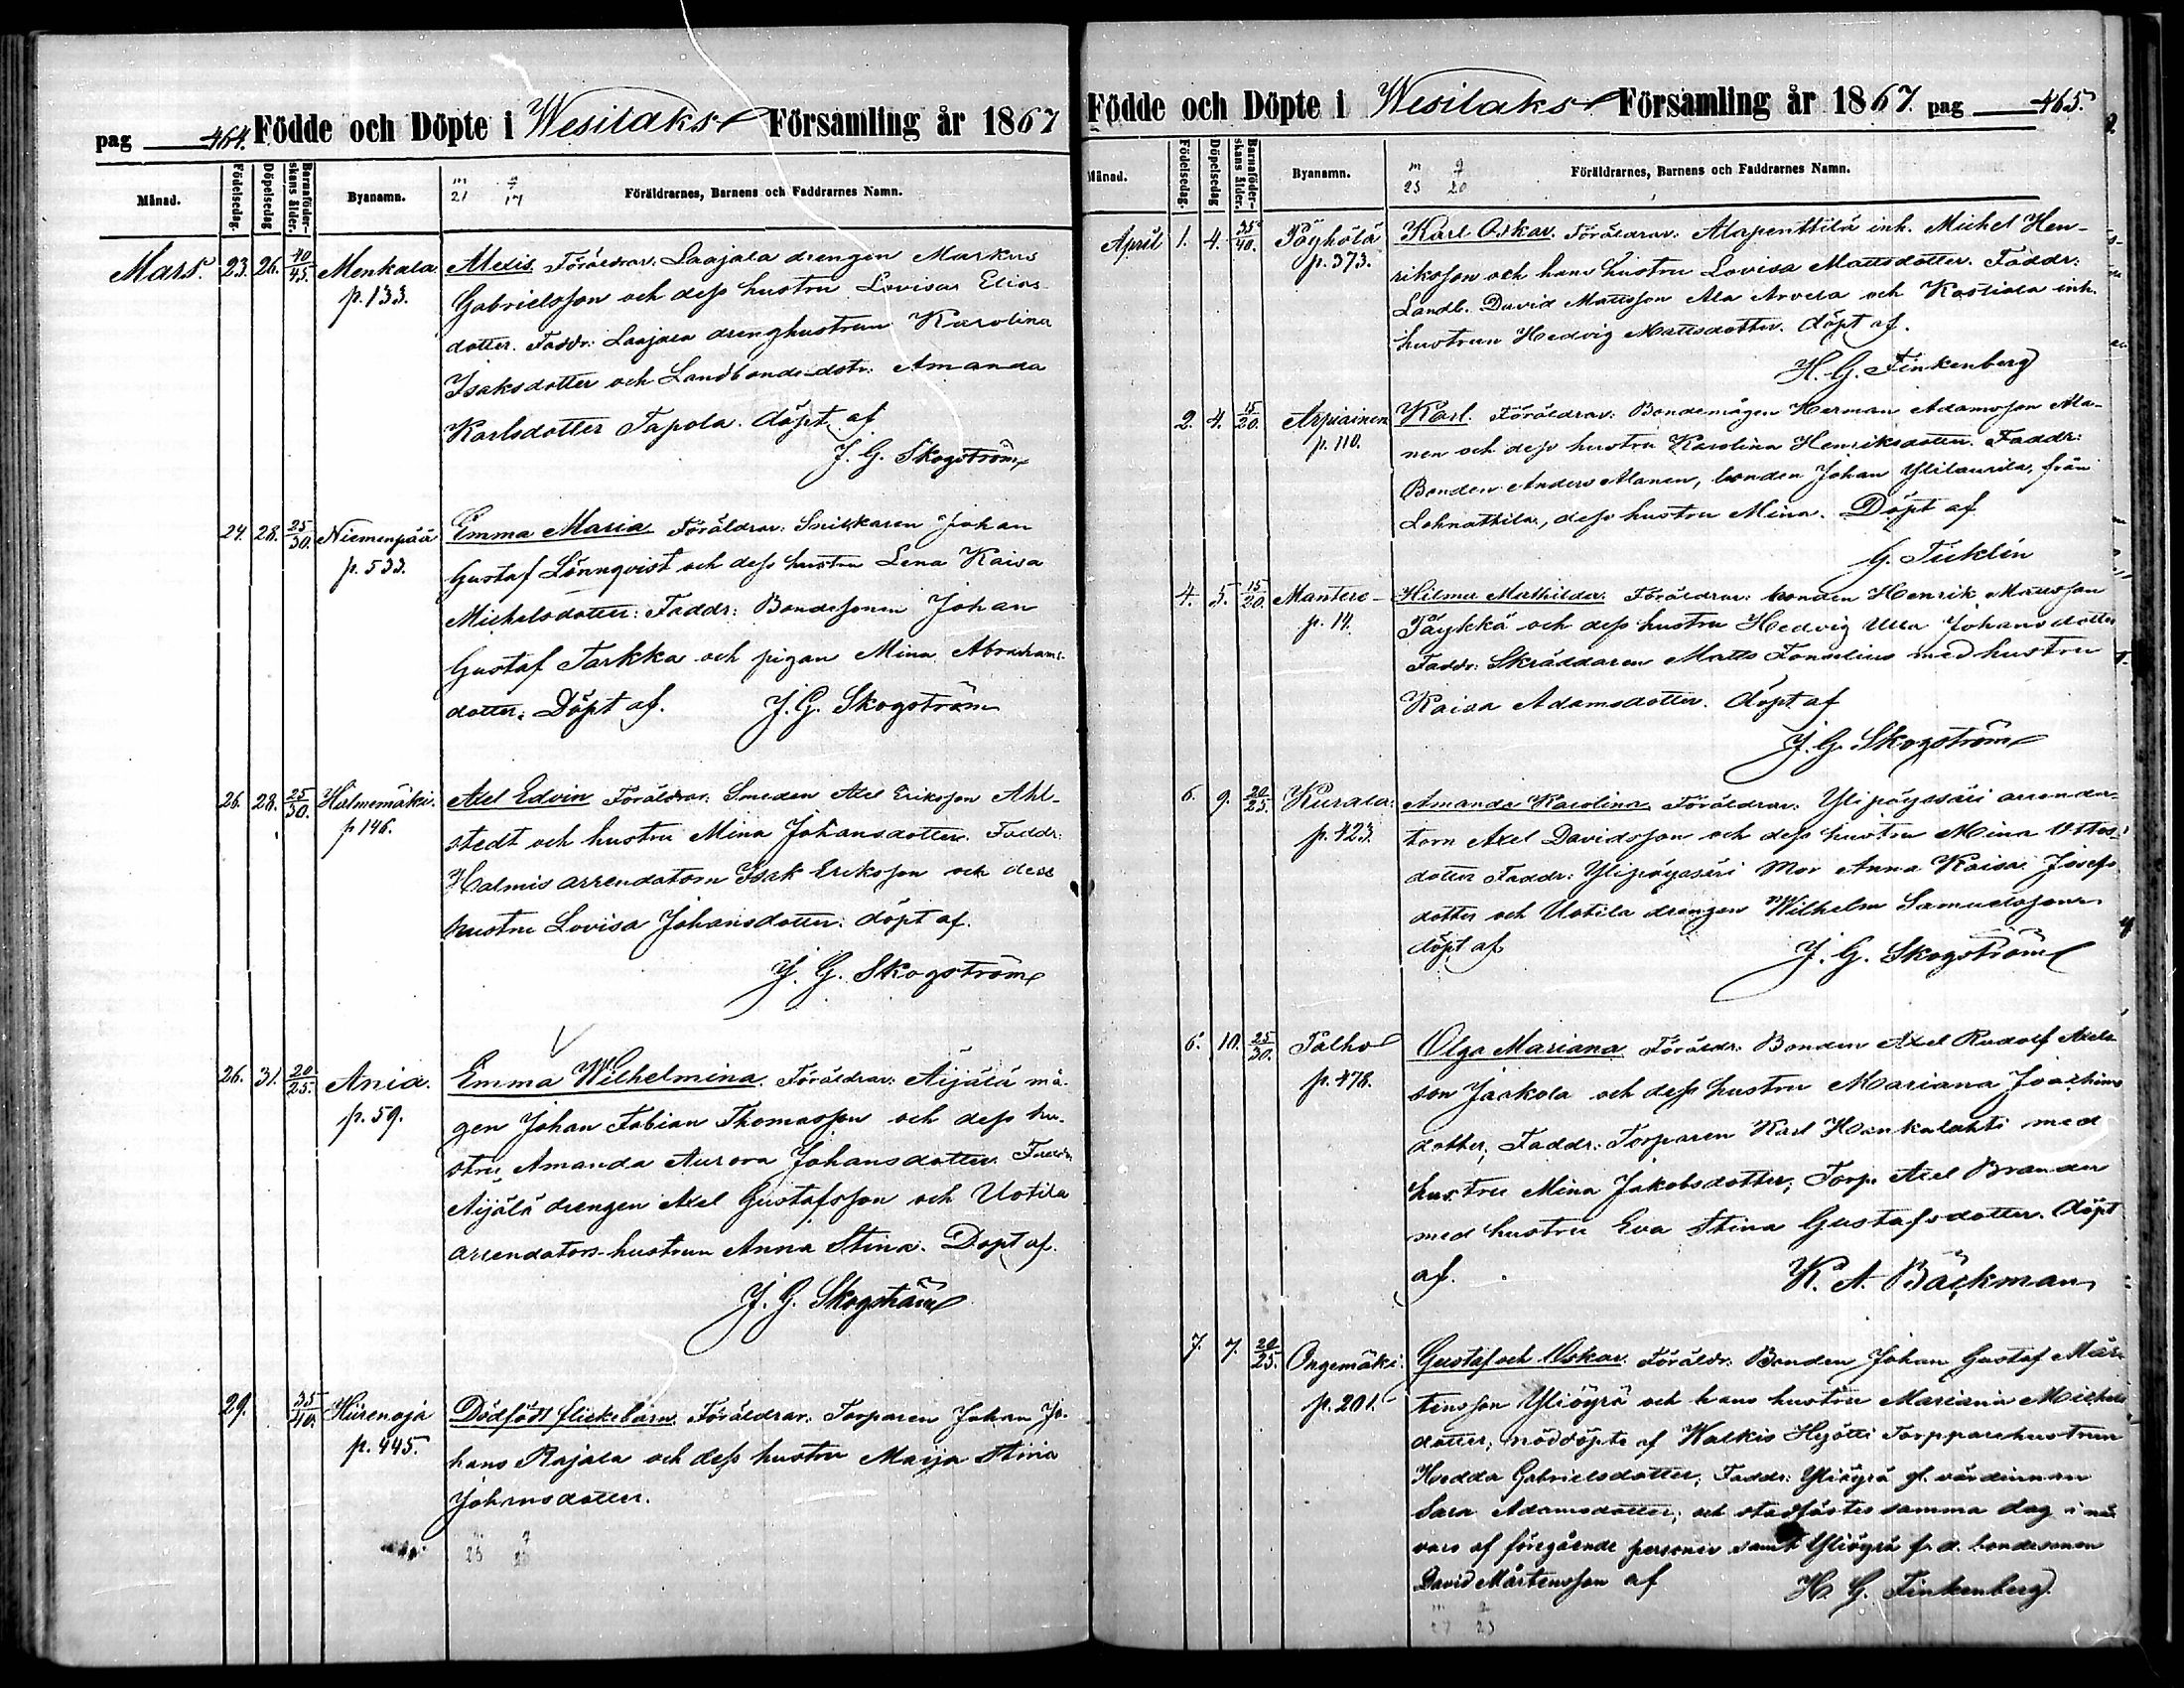 pag 464. Födde och Döpte i Wesilaks Församling år 1867
Månad. Födelsedag. Döpelsedag Barnaföderskans ålder. Byanamn. Föräldrarnes, Barnens och Faddrarnes Namn.
m q
21 17
Mars. 23. 26. 40/45. Menkala p. 133.
Alexis. Föräldrar: Laajala drengen Markus
Gabrielsson och dess hustru Lovisa Elias
dotter. Faddr: Laajala drenghustrun Karolina
Isaksdotter och Landbonde-dotr. Amanda
Karlsdotter Tapola. döpt af
J. G. Skogström
24. 28. 25/30. Niemenpää p. 533.
Emma Maria Föräldrar: Snickaren Johan
Gustaf Lönnqvist och dess hustru Lena Kaisa
Michelsdotter: Faddr: Bondesonen Johan
Gustaf Tarkka och pigan Mina Abrahams-
dotter. Döpt af. J. G. Skogström
26. 28. 25/30. Halmemäki. p 146.
Axel Edvin Föräldrar: Smeden Axel Eriksson Ahl-
stedt och hustru Mina Johansdotter. Faddr:
Halmis arrendatorn Isak Eriksson och dess
hustru Lovisa Johansdotter: döpt af.
J. G. Skogström
26. 31. 20/25. Ania. p. 59.
Emma Wilhelmina. Föräldrar: Äijälä må-
gen Johan Fabian Thomasson och dess hu-
stru Amanda Aurora Johansdotter. Faddr.
Äijälä drengen Axel Gustafsson och Uotila
arrendators-hustrun Anna Stina. Döpt af.
J. G. Skogström
29. 35/40. Hiirenoja p. 445.
Dödfödt flickebarn. Föräldrar: Torparen Johan Jo-
hans Rajala och dess hustru Maija Stina
Johansdotter.
Födde och Döpte i Wesilaks Församling år 1867. pag 465.
Månad. Födelsedag. Döpelsedag Barnaföderskans ålder. Byanamn. Föräldrarnes, Barnens och Faddrarnes Namn.
m q
23 20
April 1. 4. 35/40. Pöyhölä p. 373.
Karl Oskar. Föräldrar: Alapenttilä inh. Michel Hen-
riksson och hans hustru Lovisa Mattsdotter. Faddr:
Landb. David Mattsson Ala Arvela och Kostiala inh.
hustrun Hedvig Mattsdotter. döpt af.
H. G. Finkenberg
2. 4. 15/20. Arpiainen p. 110.
Karl. Föräldrar: Bondemågen Herman Adamsson Ala-
nen och dess hustru Karolina Henriksdotter. Faddr:
Bonden Anders Alanen, bonden Johan Ylilaurila, från
Lehnattila, dess hustru Mina. Döpt af
G. Ticklén
4. 5. 15/20. Mantere p. 14.
Hilma Mathilda. Föräldrar: bonden Henrik Mattsson
Päykkä och dess hustru Hedvig Ulla Johansdotter
Faddr: Skräddaren Matts Fonselius med hustru
Kaisa Adamsdotter. döpt af
J. G. Skogström
6. 9. 20/25. Kurala p. 423.
Amanda Karolina Föräldrar: Ylipöyssäri arrenda-
torn Axel Davidsson och dess hustru Mina Ottos-
dotter Faddr: Ylipöyssäri Mor Anna Kaisa Josefs
dotter och Uotila drengen Wilhelm Samuelsson
döpt af J. G. Skogström
6. 10. 25/30. Palho p. 478.
Olga Mariana Föräldr: Bonden Axel Rudolf Axels
son Jaakola och dess hustru Mariana Joachims
dotter, Faddr: Torparen Karl Hankalahti med
hustru Mina Jakobsdotter; Torp. Axel Brander
med hustru Eva Stina Gustafsdotter. döpt
af. K. A. Bäckman
7. 7. 20/25. Ongemäki. p. 201.
Gustaf och Oskar. Föräldr: Bonden Johan Gustaf Mår-
tensson Yliöyrä och hans hustru Mariana Michels
dotter; nöddöpte af Walkis Hyötti Torpparehustrun
Hedda Gabrielsdotter, Faddr: Yliöyrä gl. värdinnan
Sara Adamsdotter; och stadfästes samma dag i när
varo af föregående personer samt Yliöyrä f. d. bondesonen
David Mårtensson af H. G. Finkenberg.